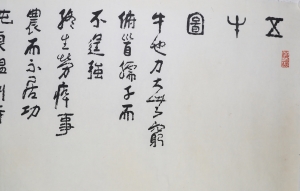 五牛圖
牛也力大無窮
俯首孺子而
不逞強
終生勞瘁事
農而不居功